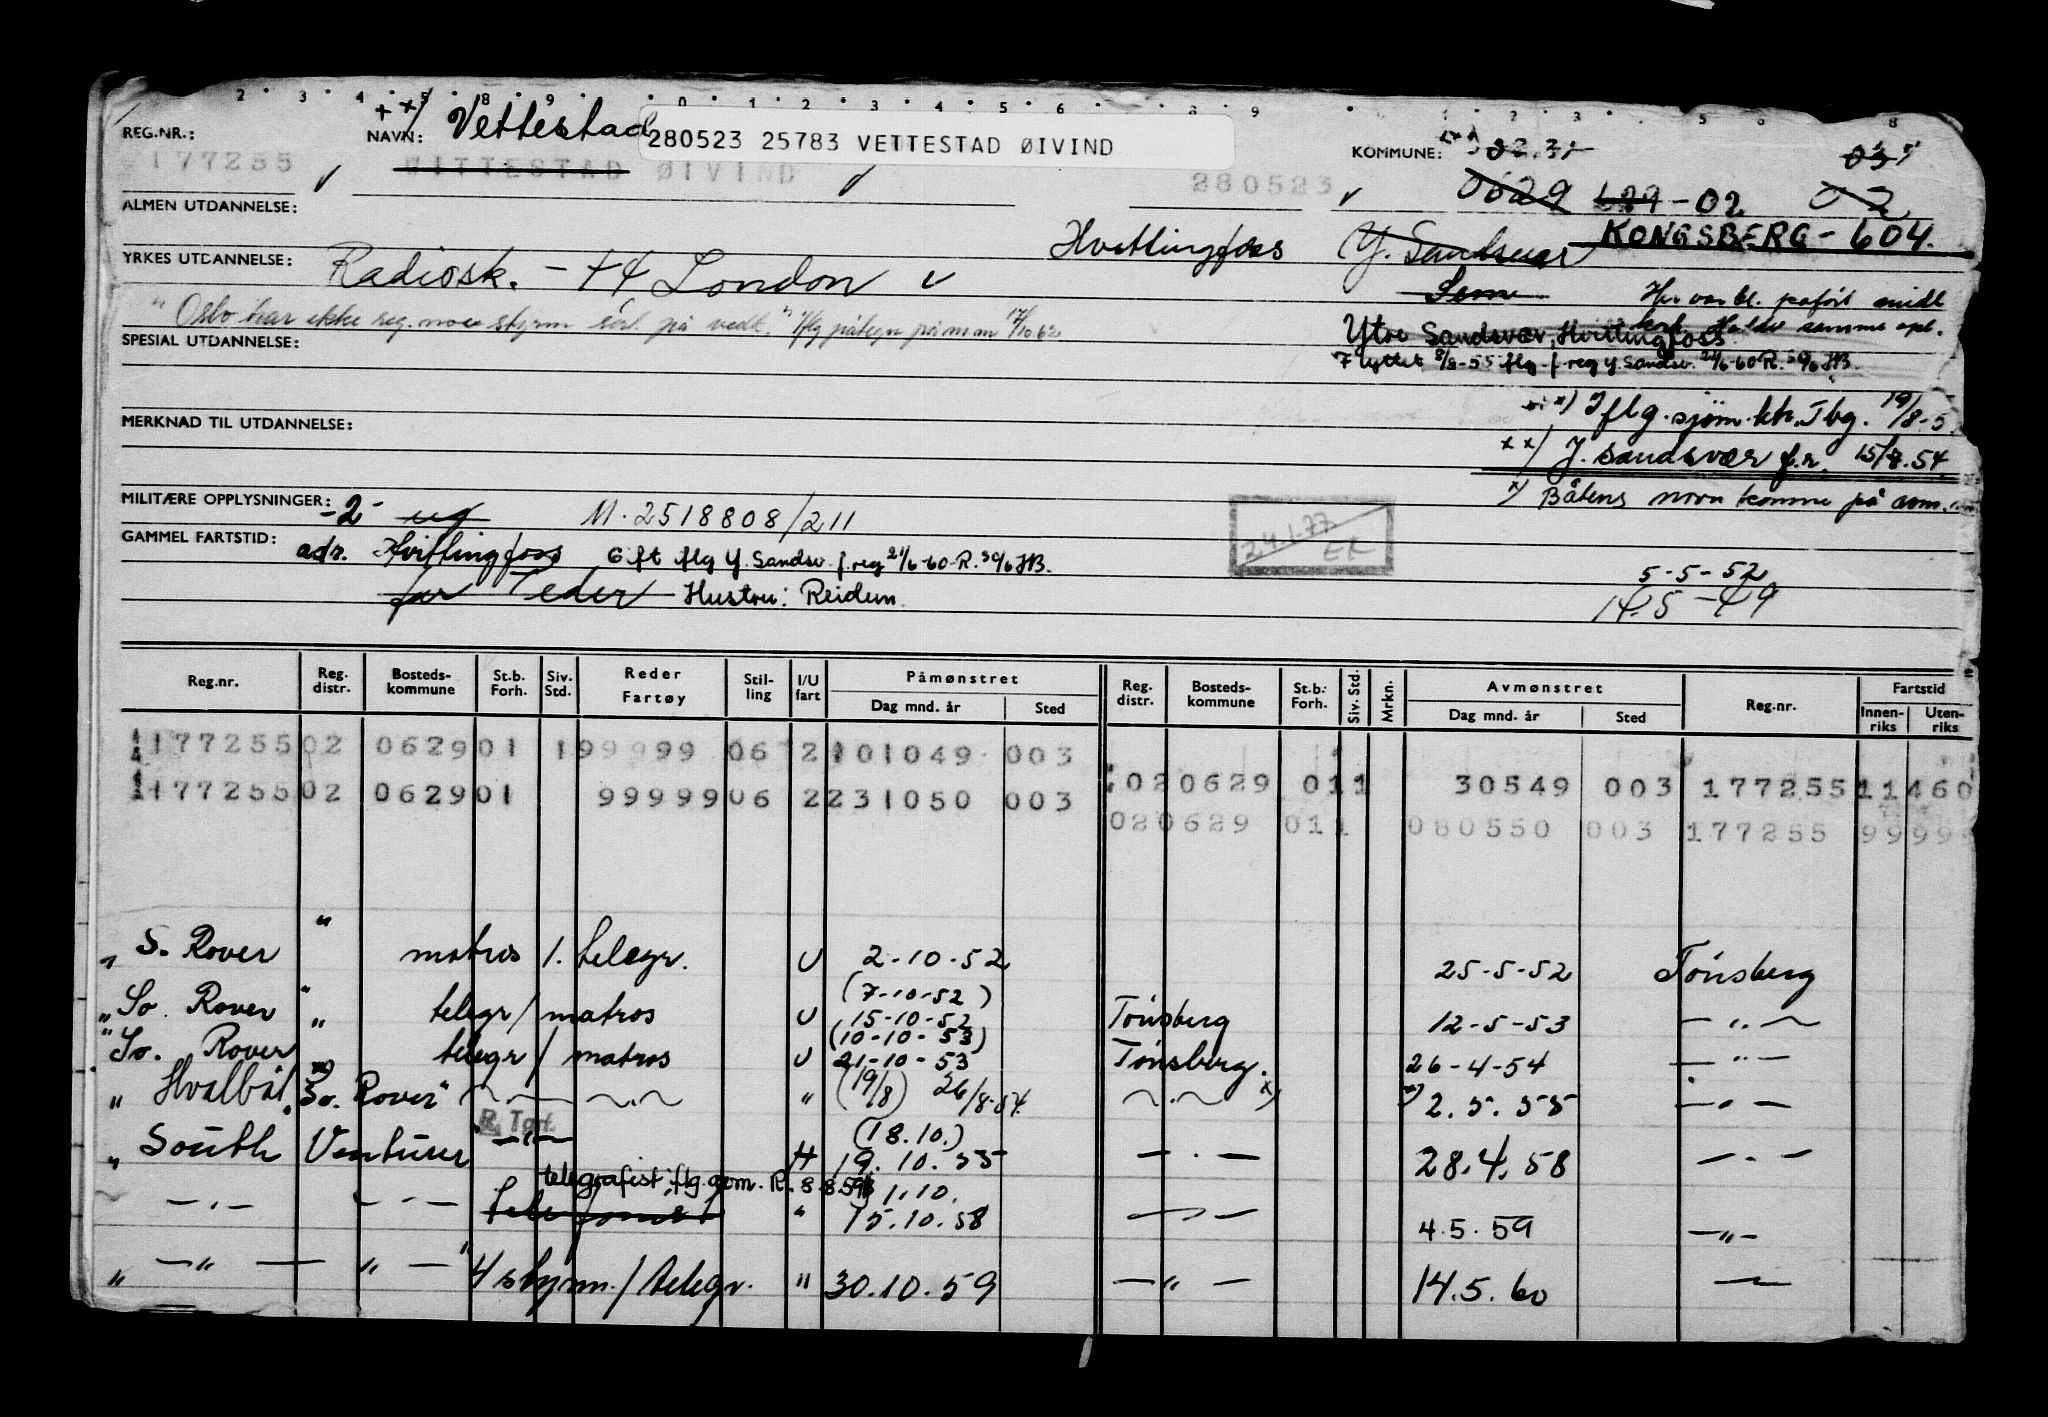 2 3 4 5 8 9 0 1 2 3 4 5 6 8 9 1 2 3 5 6 8
REG.NR.: + xx/ NAVN: Vettestad
280523 25783 VETTESTAD ØIVIND
KOMMUNE: 02.31 03
177255 WITTESTAD ØIVIND 280523 0629 629-02 02
ALMEN UTDANNELSE:
Hvittingfoss Y. Sandsvær KONGSBERG - 604.
YRKES UTDANNELSE: Radiosk. - 44 London
Sem Her var bl. påført midl
"Oslo har ikke reg. noe styrm sert på vedk." Iflg påtegn på m m 17/10.62
Ytre Sandsvær, Hvittingfoss
SPESIAL UTDANNELSE:
Flyttet 8/8-55 iflg f reg Y. Sandsv. 21/6-60 R. 30/6 HB.
xx) Iflg. sjøm.ktr. Tbg. 19/8-5
MERKNAD TIL UTDANNELSE:
xx/ Y. Sandsvær f.r. 15/7.54
x) Båtens navn komme på avm.
MILITÆRE OPPLYSNINGER: -2- ug M. 2518808/211
24.1.77
GAMMEL FARTSTID:
adr. Hvittingfoss Gift iflg Y. Sandsv f. reg 21/6-60-R. 30/6 HB.
far Peder Hustru: Reidun
5-5-52
14.5-49
Reg.nr. Reg. distr. Bosteds- kommune St.b. Forh. Siv. Std. Reder Fartøy Stil- ling I/U fart Påmønstret Dag mnd. år Sted Reg. distr. Bosteds- kommune St.b. Forh. Siv. Std. Mrkn. Avmønstret Dag mnd. år Sted Reg.nr. Fartstid Innen- riks Uten- riks
177255 02 0629 01 1 99999 06 2 101049 003
020629 011 30549 003 177255 11460
177255 02 0629 01 99999 06 2 231050 003
020629 011 080550 003 177255 9999
"
" S. Rover matros 1. telegr. U 2-10-52 25-5-52 Tönsberg
(7-10-52)
" So. Rover " telegr / matros U 15-10-52 Tönsberg 12-5-53 — " —
(10-10-53)
" So. Rover telegr / matros U 21-10-53 Tönsberg. 26-4-54 — " —
" Hvalbåt "So. Rover" — " — " (19/8) 26/8-54 — " — x) x) 2.5.55 — " —
R. Tørt.
(18.10.)
" South Venturer" — " — H 19.10.55 — " — 28.4.58 — " —
telegrafist iflg. gem. R. 8.8.59 1.10.
— " — — " — telefonist " 15.10.58 — " — 4.5.59 — " —
" — " — " — 4/styrm. / telegr. " 30.10.59 — " — 14.5.60 —